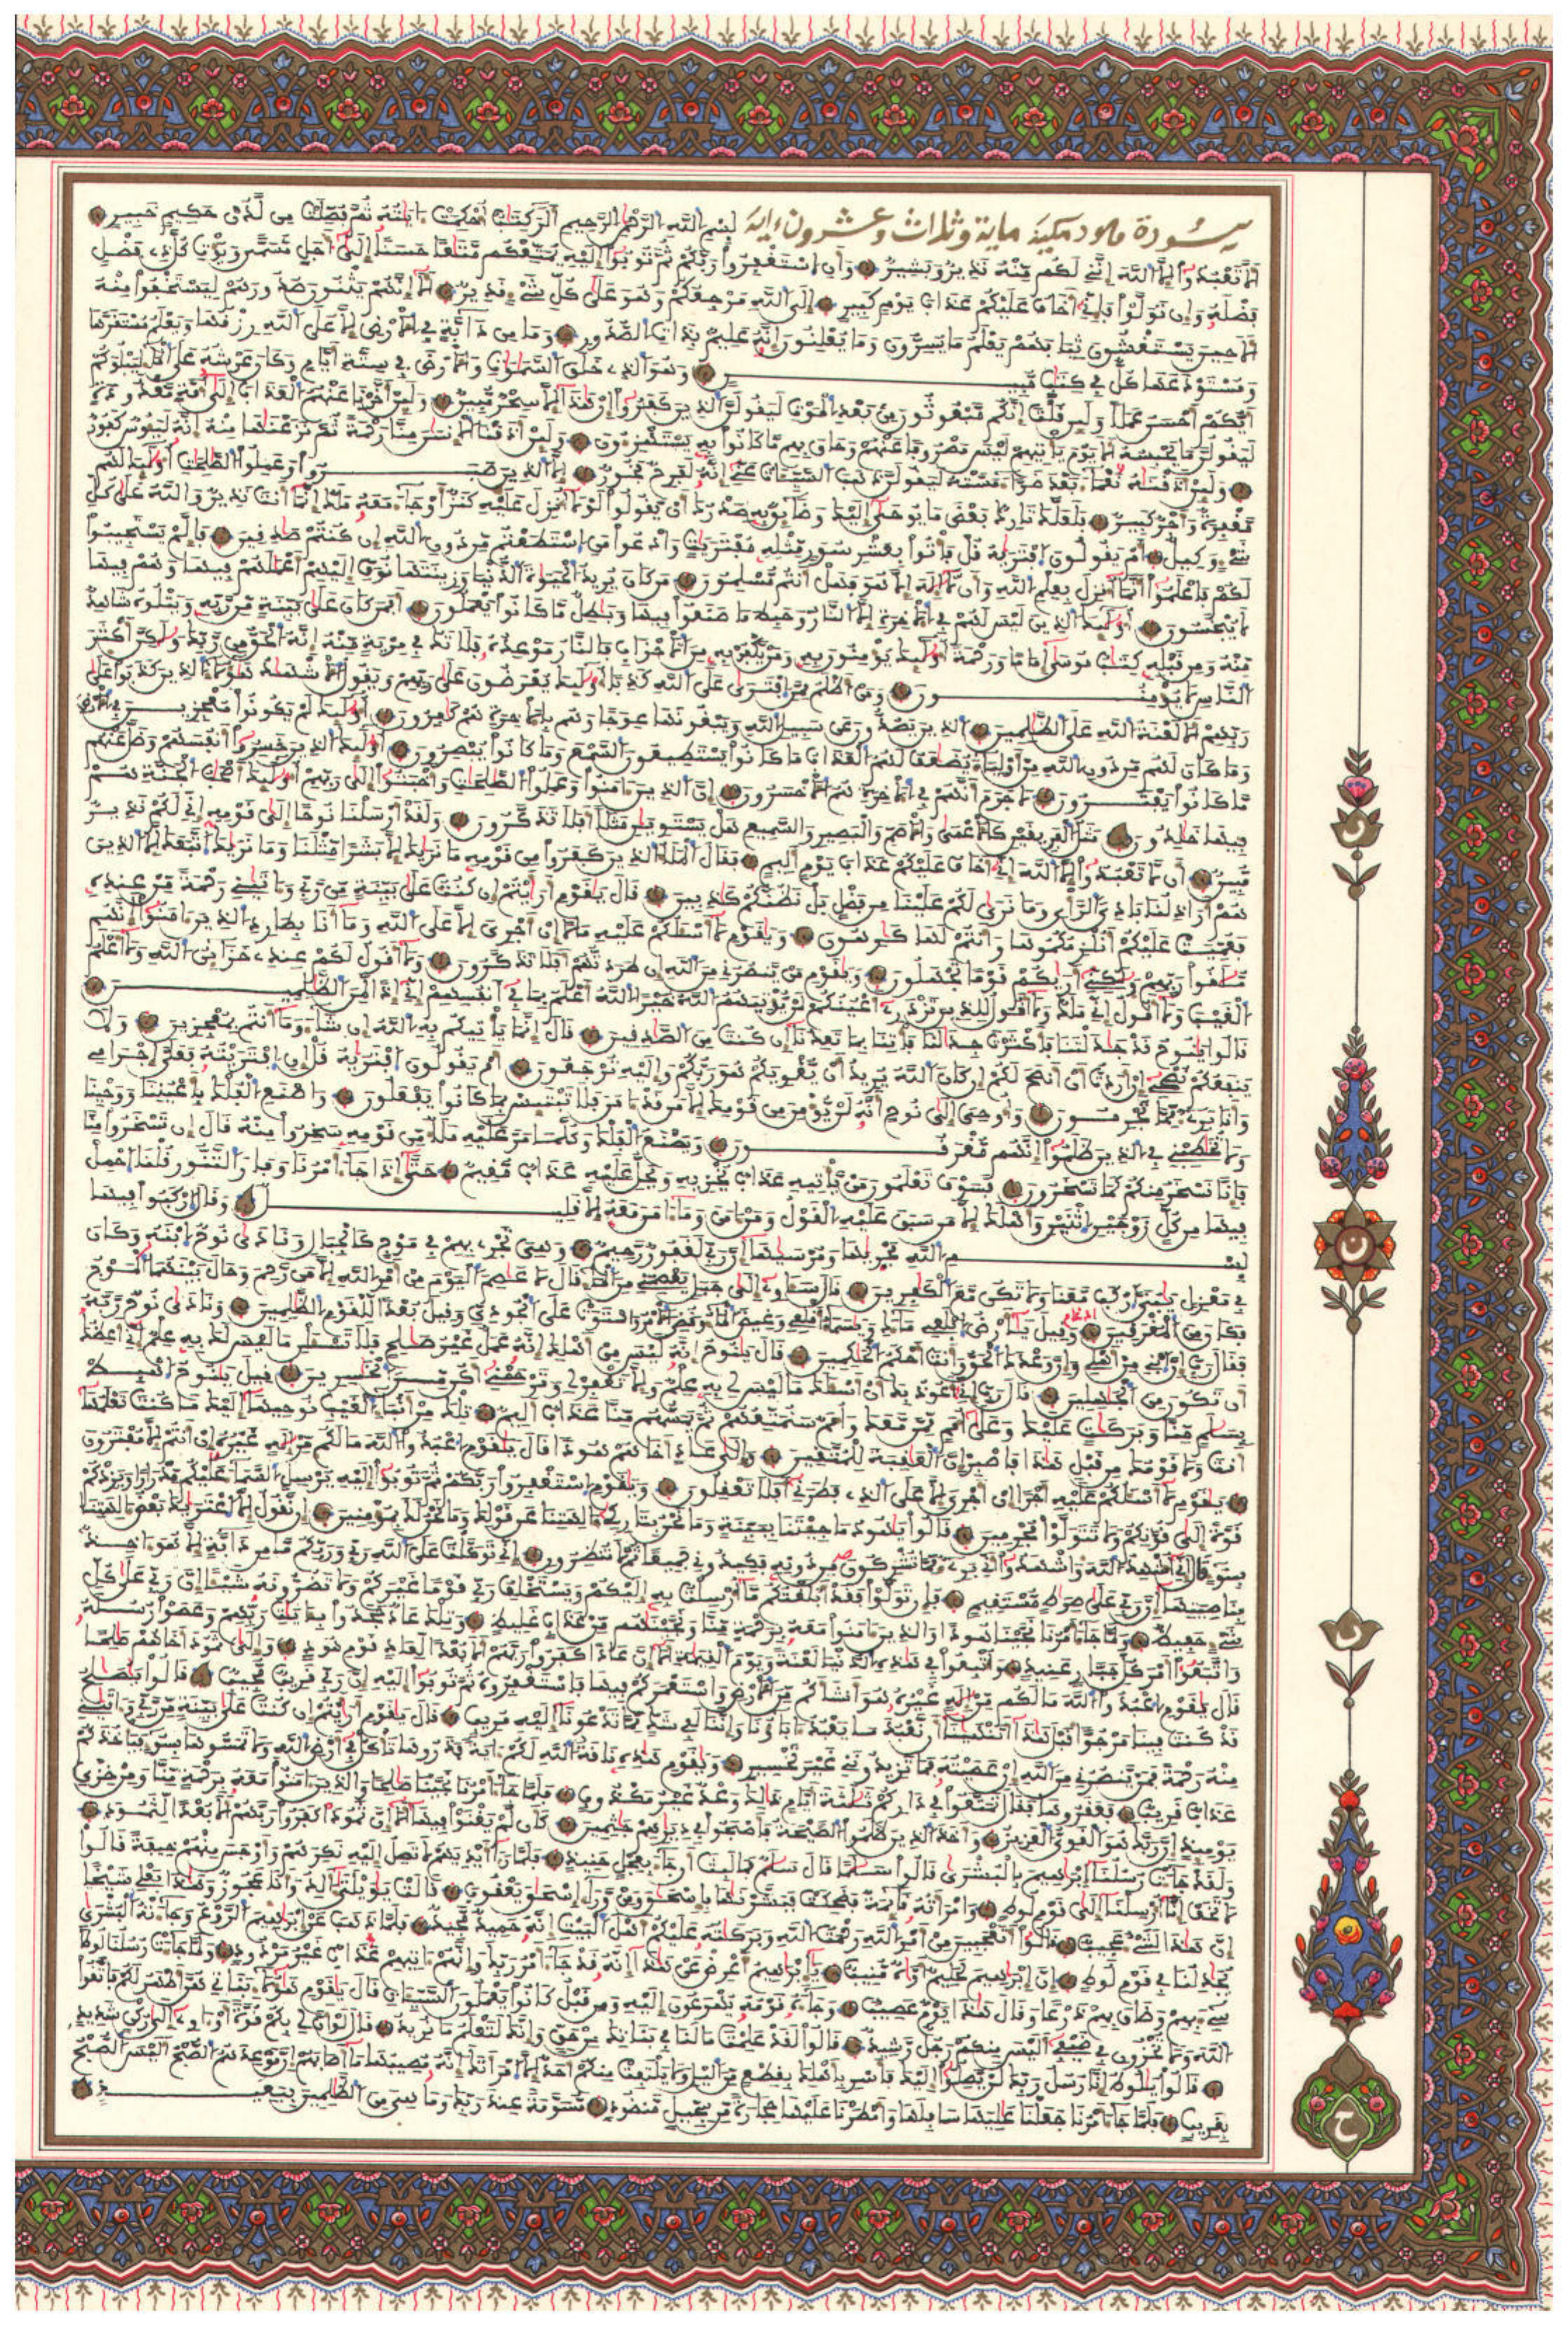 سورة هود مكية ماية وثلاث وعشرون ءاية بسم الله الرحمن الرحيم الر كتاب احكمت ءايته ثم فصلت من لدن حكيم خبير
الا تعبدوا الا الله انني لكم منه نذير وبشير وان استغفروا ربكم ثم توبوا اليه يمتعكم متعا حسنا الى اجل مسمى ويؤت كل ذي فضل
فضله وان تولوا فاني اخاف عليكم عذاب يوم كبير الى الله مرجعكم وهو على كل شيء قدير الا انهم يثنون صدورهم ليستخفوا منه
الا حين يستغشون ثيابهم يعلم ما يسرون وما يعلنون انه عليم بذات الصدور وما من دابة في الارض الا على الله رزقها ويعلم مستقرها
ومستودعها كل في كتب مبين وهو الذي خلق السموت والارض في ستة ايام وكان عرشه على الماء ليبلوكم
ايكم احسن عملا ولئن قلت انكم مبعوثون من بعد الموت ليقولن الذين كفروا ان هذا الا سحر مبين ولئن اخرنا عنهم العذاب الى امة معدودة
ليقولن ما يحبسه الا يوم ياتيهم ليس مصروفا عنهم وحاق بهم ما كانوا به يستهزءون ولئن اذقنا الانسن منا رحمة ثم نزعنها منه انه ليئوس كفور
ولئن اذقنه نعماء بعد ضراء مسته ليقولن ذهب السيات عني انه لفرح فخور الا الذين صبروا وعملوا الصلحت اولئك لهم
مغفرة واجر كبير فلعلك تارك بعض ما يوحى اليك وضائق به صدرك ان يقولوا لولا انزل عليه كنز او جاء معه ملك انما انت نذير والله على كل
شيء وكيل ام يقولون افتريه قل فاتوا بعشر سور مثله مفتريت وادعوا من استطعتم من دون الله ان كنتم صدقين فالم يستجيبوا
لكم فاعلموا انما انزل بعلم الله وان لا اله الا هو فهل انتم مسلمون من كان يريد الحيوة الدنيا وزينتها نوف اليهم اعملهم فيها وهم فيها
لا يبخسون اولئك الذين ليس لهم في الاخرة الا النار وحبط ما صنعوا فيها وبطل ما كانوا يعملون افمن كان على بينة من ربه ويتلوه شاهد
منه ومن قبله كتب موسى اماما ورحمة اولئك يؤمنون به ومن يكفر به من الاحزاب فالنار موعده فلا تك في مرية منه انه الحق من ربك ولكن اكثر
الناس لا يؤمنون ومن اظلم ممن افترى على الله كذبا اولئك يعرضون على ربهم ويقول الاشهد هؤلاء الذين كذبوا على
ربهم الا لعنة الله على الظلمين الذين يصدون عن سبيل الله ويبغونها عوجا وهم بالاخرة هم كفرون اولئك لم يكونوا معجزين في الارض
وما كان لهم من دون الله من اولياء يضعف لهم العذاب ما كانوا يستطيعون السمع وما كانوا يبصرون اولئك الذين خسروا انفسهم وضل عنهم
ما كانوا يفترون لا جرم انهم في الاخرة هم الاخسرون ان الذين ءامنوا وعملوا الصلحت واخبتوا الى ربهم اولئك اصحب الجنة هم
فيها خلدون مثل الفريقين كالاعمى والاصم والبصير والسميع هل يستوين مثلا افلا تذكرون ولقد ارسلنا نوحا الى قومه اني لكم نذير
مبين ان لا تعبدوا الا الله اني اخاف عليكم عذاب يوم اليم فقال الملا الذين كفروا من قومه ما نريك الا بشرا مثلنا وما نريك اتبعك الا الذين
هم اراذلنا بادي الراي وما نرى لكم علينا من فضل بل نظنكم كذبين قال يقوم ارايتم ان كنت على بينة من ربي وءاتيني رحمة من عنده
فعميت عليكم انلزمكموها وانتم لها كرهون ويقوم لا اسئلكم عليه مالا ان اجري الا على الله وما انا بطارد الذين ءامنوا انهم
ملقوا ربهم ولكني اريكم قوما تجهلون ويقوم من ينصرني من الله ان طردتهم افلا تذكرون ولا اقول لكم عندي خزائن الله ولا اعلم
الغيب ولا اقول اني ملك ولا اقول للذين تزدري اعينكم لن يؤتيهم الله خيرا الله اعلم بما في انفسهم اني اذا لمن الظلمين
قالوا ينوح قد جدلتنا فاكثرت جدلنا فاتنا بما تعدنا ان كنت من الصدقين قال انما ياتيكم به الله ان شاء وما انتم بمعجزين ولا
ينفعكم نصحي ان اردت ان انصح لكم ان كان الله يريد ان يغويكم هو ربكم واليه ترجعون ام يقولون افتريه قل ان افتريته فعلي اجرامي
وانا بريء مما تجرمون واوحي الى نوح انه لن يؤمن من قومك الا من قد ءامن فلا تبتئس بما كانوا يفعلون واصنع الفلك باعيننا ووحينا
ولا تخطبني في الذين ظلموا انهم مغرقون ويصنع الفلك وكلما مر عليه ملا من قومه سخروا منه قال ان تسخروا منا
فانا نسخر منكم كما تسخرون فسوف تعلمون من ياتيه عذاب يخزيه ويحل عليه عذاب مقيم حتى اذا جاء امرنا وفار التنور قلنا احمل
فيها من كل زوجين اثنين واهلك الا من سبق عليه القول ومن ءامن وما ءامن معه الا قليل وقال اركبوا فيها
بسم الله مجريها ومرسيها ان ربي لغفور رحيم وهي تجري بهم في موج كالجبال ونادى نوح ابنه وكان
في معزل يبني اركب معنا ولا تكن مع الكفرين قال ساوي الى جبل يعصمني من الماء قال لا عاصم اليوم من امر الله الا من رحم وحال بينهما الموج
فكان من المغرقين وقيل يارض ابلعي ماءك ويسماء اقلعي وغيض الماء وقضي الامر واستوت على الجودي وقيل بعدا للقوم الظلمين ونادى نوح ربه
فقال رب ان ابني من اهلي وان وعدك الحق وانت احكم الحكمين قال ينوح انه ليس من اهلك انه عمل غير صلح فلا تسئلن ما ليس لك به علم اني اعظك
ان تكون من الجهلين قال رب اني اعوذ بك ان اسئلك ما ليس لي به علم والا تغفر لي وترحمني اكن من الخسرين قيل ينوح اهبط
بسلم منا وبركت عليك وعلى امم ممن معك وامم سنمتعهم ثم يمسهم منا عذاب اليم تلك من انباء الغيب نوحيها اليك ما كنت تعلمها
انت ولا قومك من قبل هذا فاصبر ان العقبة للمتقين والى عاد اخاهم هودا قال يقوم اعبدوا الله ما لكم من اله غيره ان انتم الا مفترون
يقوم لا اسئلكم عليه اجرا ان اجري الا على الذي فطرني افلا تعقلون ويقوم استغفروا ربكم ثم توبوا اليه يرسل السماء عليكم مدرارا ويزدكم
قوة الى قوتكم ولا تتولوا مجرمين قالوا يهود ما جئتنا ببينة وما نحن بتاركي ءالهتنا عن قولك وما نحن لك بمؤمنين ان نقول الا اعتريك بعض ءالهتنا
بسوء قال اني اشهد الله واشهدوا اني بريء مما تشركون من دونه فكيدوني جميعا ثم لا تنظرون اني توكلت على الله ربي وربكم ما من دابة الا هو ءاخذ
بناصيتها ان ربي على صرط مستقيم فان تولوا فقد ابلغتكم ما ارسلت به اليكم ويستخلف ربي قوما غيركم ولا تضرونه شيئا ان ربي على كل
شيء حفيظ ولما جاء امرنا نجينا هودا والذين ءامنوا معه برحمة منا ونجينهم من عذاب غليظ وتلك عاد جحدوا بايت ربهم وعصوا رسله
واتبعوا امر كل جبار عنيد واتبعوا في هذه الدنيا لعنة ويوم القيمة الا ان عادا كفروا ربهم الا بعدا لعاد قوم هود والى ثمود اخاهم صلحا
قال يقوم اعبدوا الله ما لكم من اله غيره هو انشاكم من الارض واستعمركم فيها فاستغفروه ثم توبوا اليه ان ربي قريب مجيب قالوا يصلح
قد كنت فينا مرجوا قبل هذا اتنهينا ان نعبد ما يعبد ءاباؤنا واننا لفي شك مما تدعونا اليه مريب قال يقوم ارايتم ان كنت على بينة من ربي وءاتيني
منه رحمة فمن ينصرني من الله ان عصيته فما تزيدونني غير تخسير ويقوم هذه ناقة الله لكم ءاية فذروها تاكل في ارض الله ولا تمسوها بسوء فياخذكم
عذاب قريب فعقروها فقال تمتعوا في داركم ثلثة ايام ذلك وعد غير مكذوب فلما جاء امرنا نجينا صلحا والذين ءامنوا معه برحمة منا ومن خزي
يومئذ ان ربك هو القوي العزيز واخذ الذين ظلموا الصيحة فاصبحوا في ديرهم جثمين كان لم يغنوا فيها الا ان ثمودا كفروا ربهم الا بعدا لثمود
ولقد جاءت رسلنا ابرهيم بالبشرى قالوا سلما قال سلم فما لبث ان جاء بعجل حنيذ فلما رءا ايديهم لا تصل اليه نكرهم واوجس منهم خيفة قالوا
لا تخف انا ارسلنا الى قوم لوط وامراته قائمة فضحكت فبشرنها باسحق ومن وراء اسحق يعقوب قالت يويلتى ءالد وانا عجوز وهذا بعلي شيخا
ان هذا لشيء عجيب قالوا اتعجبين من امر الله رحمت الله وبركته عليكم اهل البيت انه حميد مجيد فلما ذهب عن ابرهيم الروع وجاءته البشرى
يجدلنا في قوم لوط ان ابرهيم لحليم اوه منيب يابرهيم اعرض عن هذا انه قد جاء امر ربك وانهم ءاتيهم عذاب غير مردود ولما جاءت رسلنا لوطا
سيء بهم وضاق بهم ذرعا وقال هذا يوم عصيب وجاءه قومه يهرعون اليه ومن قبل كانوا يعملون السيات قال يقوم هؤلاء بناتي هن اطهر لكم فاتقوا
الله ولا تخزون في ضيفي اليس منكم رجل رشيد قالوا لقد علمت ما لنا في بناتك من حق وانك لتعلم ما نريد قال لو ان لي بكم قوة او ءاوي الى ركن شديد
قالوا يلوط انا رسل ربك لن يصلوا اليك فاسر باهلك بقطع من اليل ولا يلتفت منكم احد الا امراتك انه مصيبها ما اصابهم ان موعدهم الصبح اليس الصبح
بقريب فلما جاء امرنا جعلنا عليها سافلها وامطرنا عليها حجارة من سجيل منضود مسومة عند ربك وما هي من الظلمين ببعيد
ن
ن
ن
ح